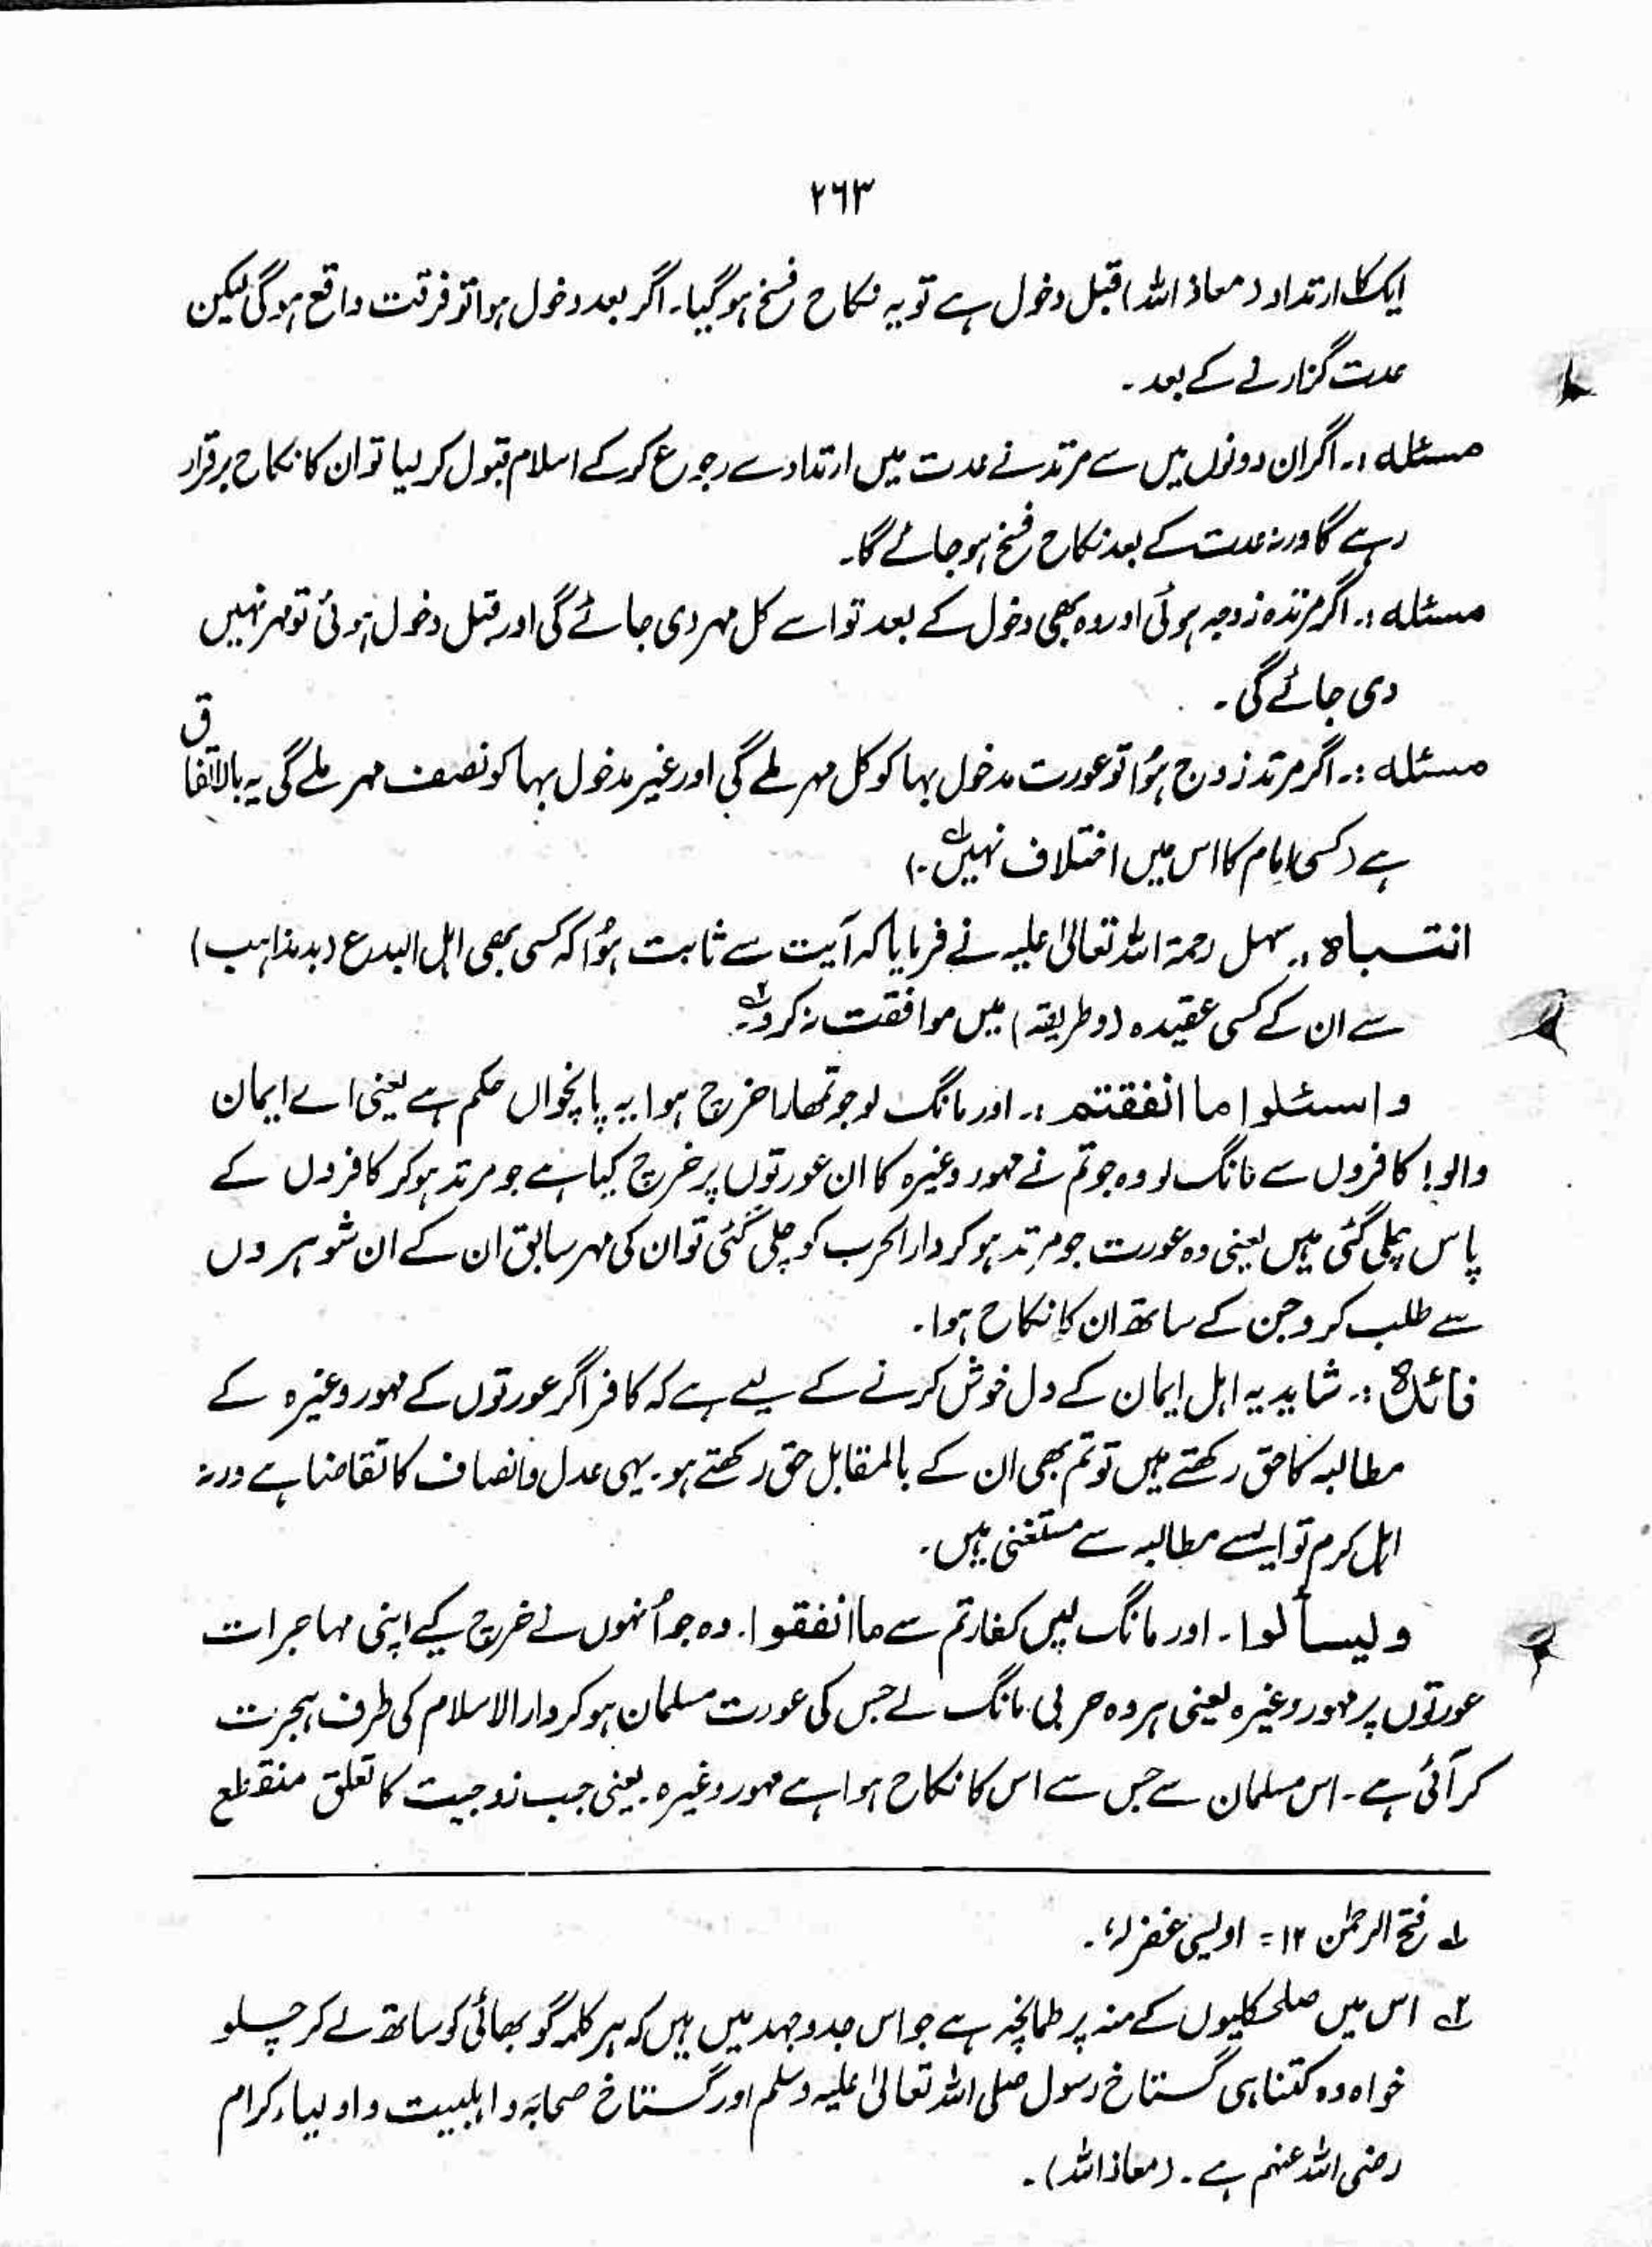 ۲۶۳
ایک کا ارتداد (معاذ اللہ) قبل دخول ہے تو یہ نکاح فسخ ہو گیا۔ اگر بعد دخول ہوا تو فرقت واقع ہو گی لیکن
عدت گزارنے کے بعد۔
مسئلہ :۔ اگر ان دونوں میں سے مرتد نے عدت میں ارتداد سے رجوع کر کے اسلام قبول کر لیا تو ان کا نکاح برقرار
رہے گا ورنہ عدت کے بعد نکاح فسخ ہو جائے گا۔
مسئلہ :۔ اگر مرتدہ زوجہ ہوئی اور وہ بھی دخول کے بعد تو اسے کل مہر دی جائے گی اور قبل دخول ہوئی تو مہر نہیں
دی جائے گی۔
مسئلہ :۔ اگر مرتد زوج ہؤا تو عورت مدخول بہا کو کل مہر ملے گی اور غیر مدخول بہا کو نصف مہر ملے گی یہ بالاتفاق
ہے (کسی امام کا اس میں اختلاف نہیں لہ۔)
انتباہ :۔ سہل رحمۃ اللہ تعالیٰ علیہ نے فرمایا کہ آیت سے ثابت ہؤا کہ کسی بھی اہل البدع (بدمذاہب)
سے ان کے کسی عقیدہ (و طریقہ) میں موافقت نہ کرو ۲ہ۔
واسئلوا ما انفقتم :۔ اور مانگ لو جو تمھارا خرچ ہوا یہ پانچواں حکم ہے یعنی اے ایمان
والو! کافروں سے مانگ لو وہ جو تم نے مہور وغیرہ کا ان عورتوں پر خرچ کیا ہے جو مرتد ہو کر کافروں کے
پاس چلی گئی ہیں یعنی وہ عورت جو مرتد ہو کر دارالحرب کو چلی گئی تو ان کی مہر سابق ان کے ان شوہروں
سے طلب کرو جن کے ساتھ ان کا نکاح ہوا۔
فائدہ :۔ شاید یہ اہل ایمان کے دل خوش کرنے کے لیے ہے کہ کافر اگر عورتوں کے مہور وغیرہ کے
مطالبہ کا حق رکھتے ہیں تو تم بھی ان کے بالمقابل حق رکھتے ہو۔ یہی عدل و انصاف کا تقاضا ہے ورنہ
اہل کرم تو ایسے مطالبہ سے مستغنی ہیں۔
ولیسألوا۔ اور مانگ لیں کفار تم سے ما انفقوا۔ وہ جو اُنہوں نے خرچ کیے اپنی مہاجرات
عورتوں پر مہور وغیرہ یعنی ہر وہ حربی مانگ لے جس کی عورت مسلمان ہو کر دارالاسلام کی طرف ہجرت
کر آئی ہے۔ اس مسلمان سے جس سے اس کا نکاح ہوا ہے مہور وغیرہ۔ یعنی جب زوجیت کا تعلق منقطع
لہ فتح الرحمٰن ۱۲ = اویسی غفرلہٗ۔
۲ہ اس میں صلحکلیوں کے منہ پر طمانچہ ہے جو اس جدوجہد میں ہیں کہ ہر کلمہ گو بھائی کو ساتھ لے کر چلو
خواہ وہ کتنا ہی گستاخ رسول صلی اللہ تعالیٰ علیہ وسلم اور گستاخ صحابہ و اہلبیت و اولیاء کرام
رضی اللہ عنہم ہے۔ (معاذ اللہ)۔